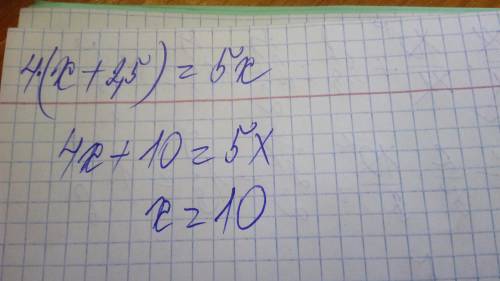 4·(x+2,5)=5x
4x+10=5x
x=10